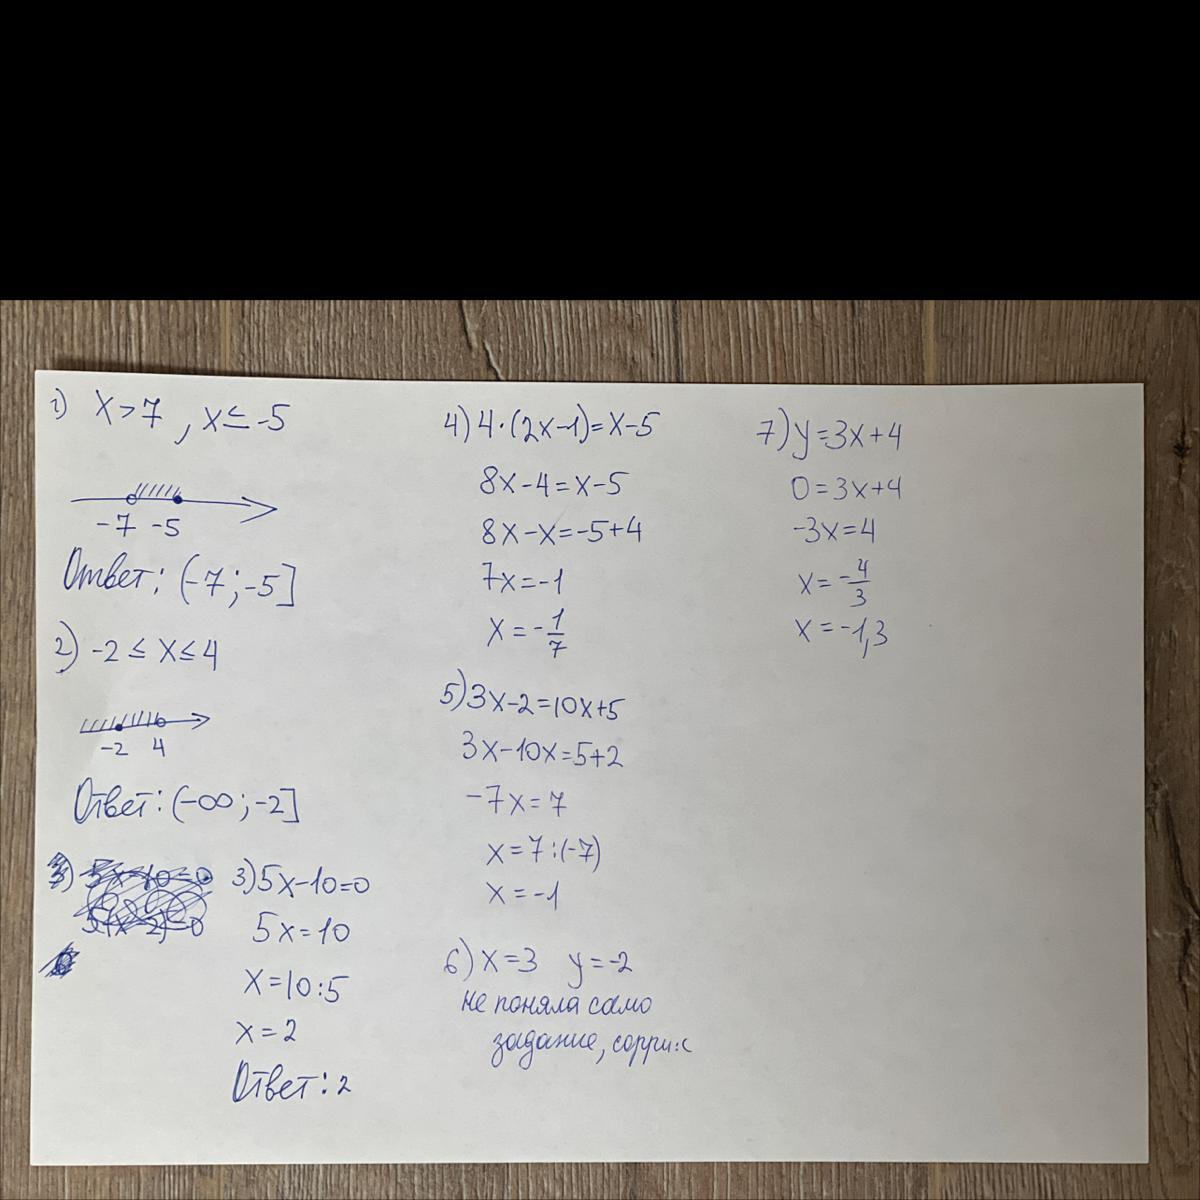 1) x>7 , x≤-5
-7 -5
Ответ: (-7;-5]
2) -2≤x≤4
-2 4
Ответ: (-∞;-2]
3) 5x-10=0
5(x-2)=0
3) 5x-10=0
5x=10
x=10:5
x=2
Ответ: 2
4) 4·(2x-1)=x-5
8x-4=x-5
8x-x=-5+4
7x=-1
x=-1/7
5) 3x-2=10x+5
3x-10x=5+2
-7x=7
x=7:(-7)
x=-1
6) x=3 y=-2
не поняла само
задание, сорри:с
7) y=3x+4
0=3x+4
-3x=4
x=-4/3
x=-1,3